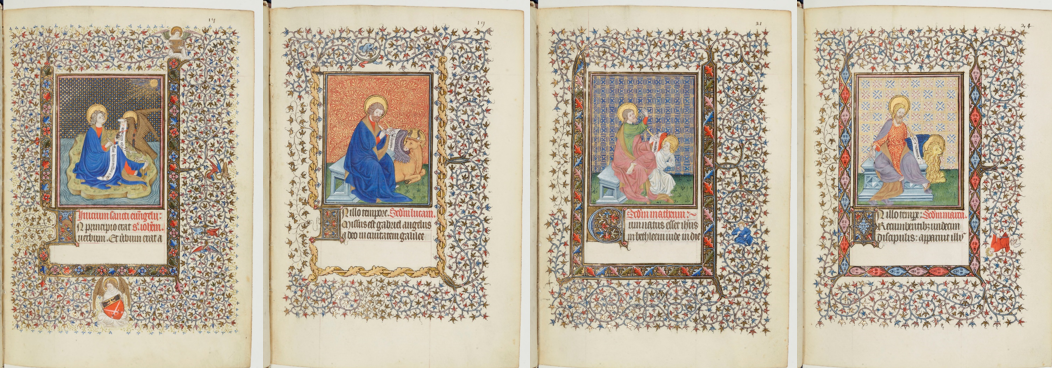 17
Inicium sancti euangelii
N principio erat s. iohem
verbum. Et verbum erat a
19
N illo tempore. Sedm lucam.
Missus est gabriel angelus
a deo in civitatem galilee
21
Sedm matheum:
um natus esset ihesus
in bethleem iude in die
N illo tempe: Sedm marcu.
Recumbentib; undecim
discipulis: apparuit illis